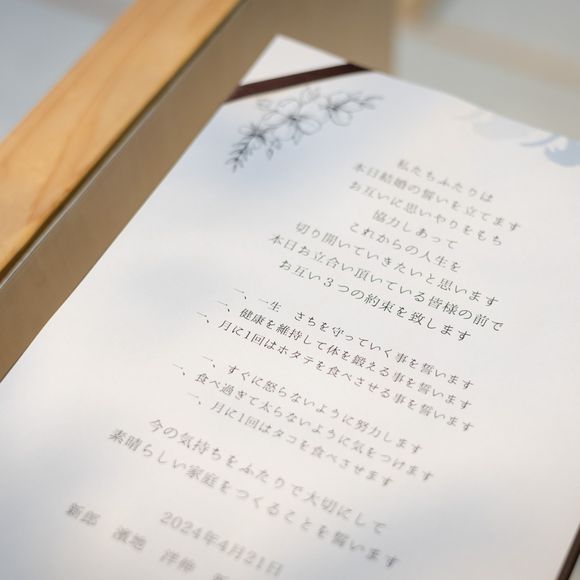 私たちふたりは
本日結婚の誓いを立てます
お互いに思いやりをもち
協力しあって
これからの人生を
切り開いていきたいと思います
本日お立合い頂いている皆様の前で
お互い3つの約束を致します
一、一生　さちを守っていく事を誓います
一、健康を維持して体を鍛える事を誓います
一、月に1回はホタテを食べさせる事を誓います
一、すぐに怒らないように努力します
一、食べ過ぎて太らないように気をつけます
一、月に1回はタコを食べさせます
今の気持ちをふたりで大切にして
素晴らしい家庭をつくることを誓います
2024年4月21日
新郎　濱地　洋伸